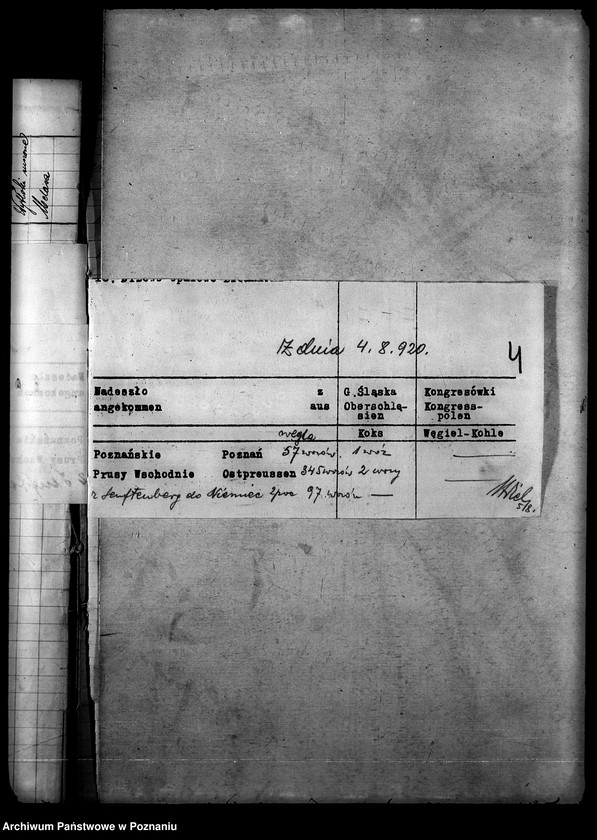 Z dnia 4.8.920.
4
Nadeszło z G.Śląska Kongresówki
angekommen aus Oberschlę- Kongress-
sien polen
węgla Koks Węgiel-Kohle
Poznańskie Poznań 57 wozów. 1 wóz
Prusy Wschodnie Ostpreussen 345 wozów 2 wozy
z Senftenberg do Niemiec 97 wozów —
5/8.
Archiwum Państwowe w Poznaniu